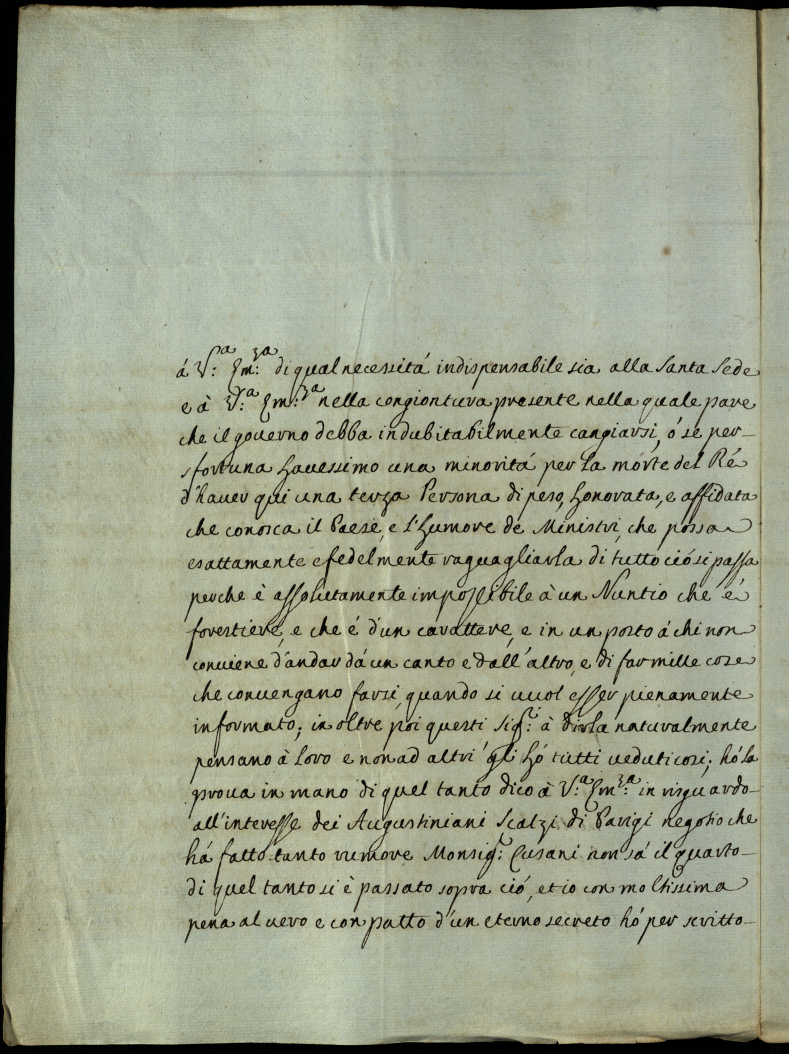 á V.ª Em.ᶻᵃ di qual necessitá indispensabile sia alla Santa Sede
e à V.ª Em.ᶻᵃ nella congiontura presente nella quale pare
che il governo debba indubitabilmente cangiarsi, ó se per
sfortuna havessimo una minoritá per la morte del Ré
d'hauer qui una terza Persona di peso, honorata, e affidata
che conosca il Paese, e l'humore de Ministri, che possa
esattamente e fedelmente raguagliarla di tutto ció si passa
perche è assolutamente impossibile à un Nuntio che é
forestiere, e che é d'un carattere, e in un posto á chi non
conviene d'andar dá un canto e dall'altro, e di far mille cose
che convengano farsi, quando si vuol esser pienamente
informato; in oltre poi questi Sig.ʳⁱ à dirla naturalmente
pensano à loro e non ad altri gli hó tutti veduti cosi; hó la
prova in mano di quel tanto dico à V.ª Em.ᶻᵃ in risguardo
all'interesse dei Augustiniani Scalzi di Parigi negotio che
há fatto tanto rumore Monsig.ʳ Cusani non sá il quarto
di quel tanto si è passato sopra ció, et io con moltissima
pena al vero e con patto d'un eterno secreto hó per scritto